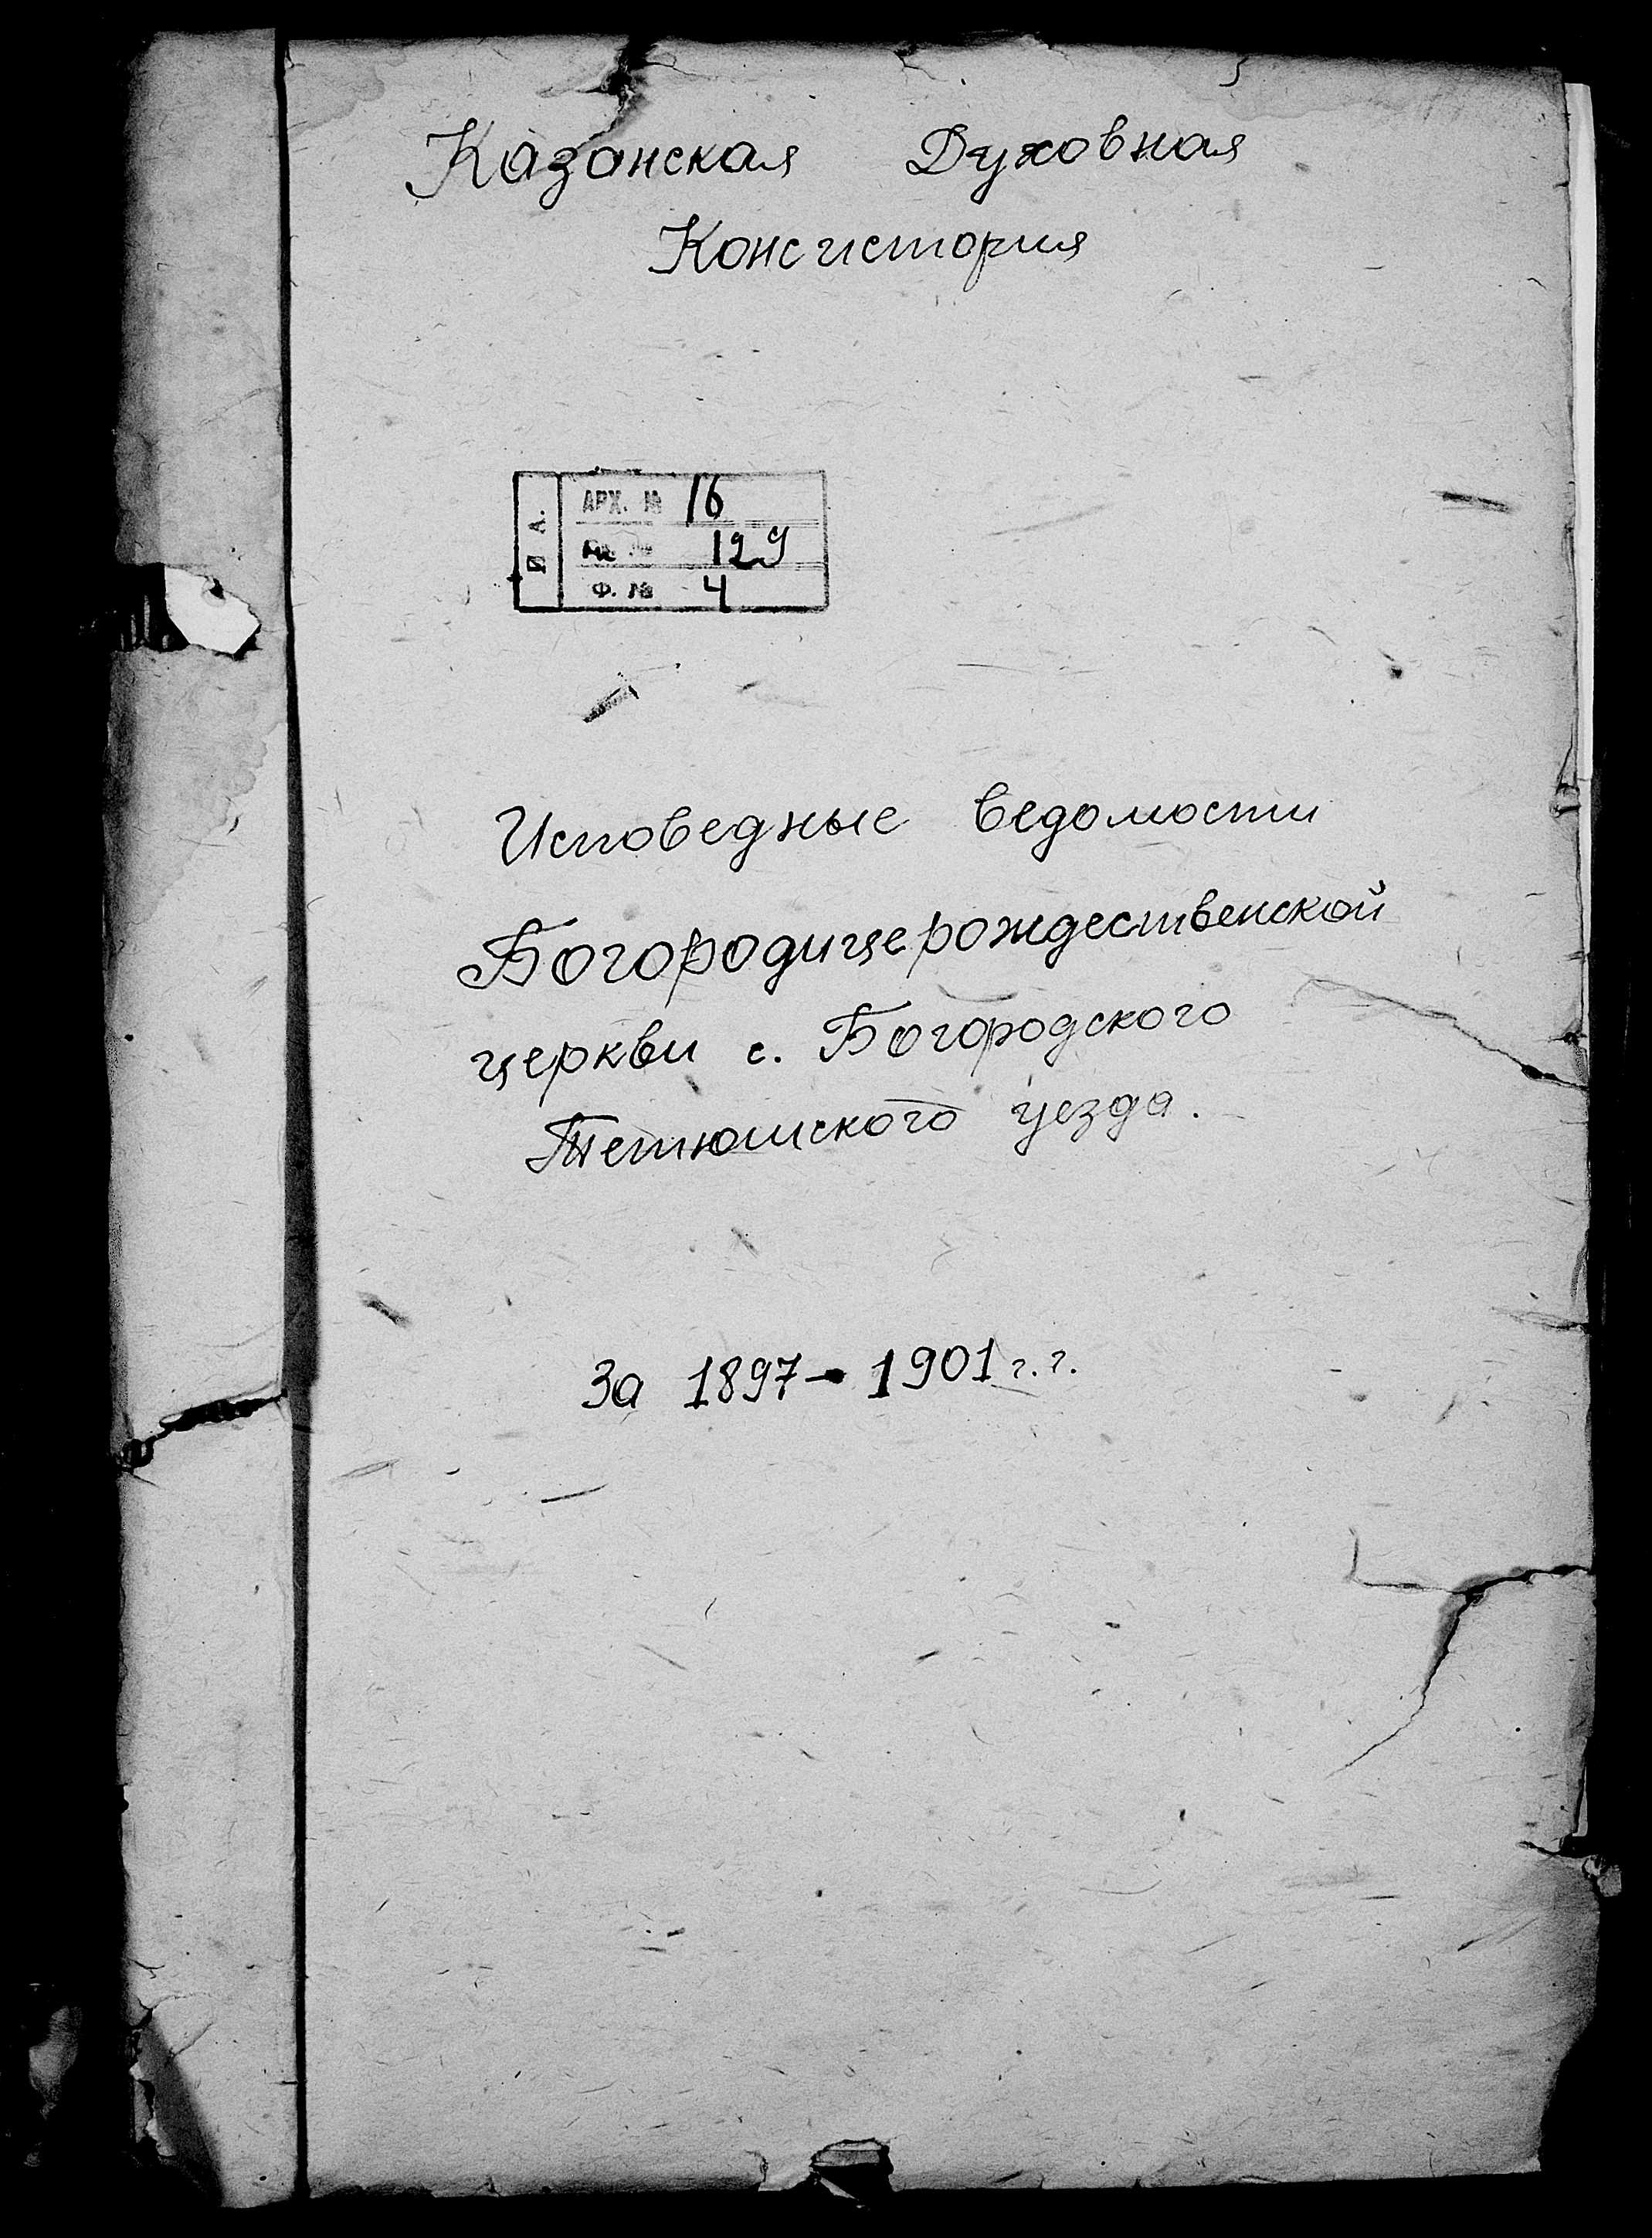 Казанская Духовная
Консистория
АРХ. № 16
129
Ф. № 4
Исповедные ведомости
Богородицерождественской
церкви с. Богородского
Тетюшского уезда.
За 1897-1901 г.г.